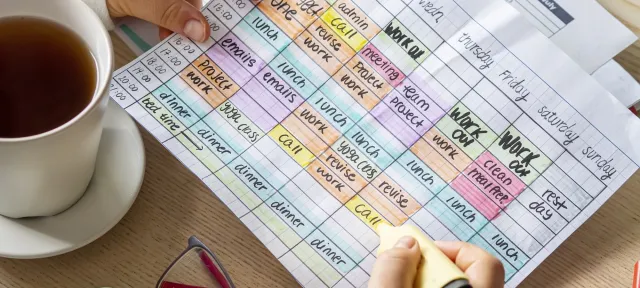 admin
wedn.
thursday
Friday
saturday
sunday
call
work out
lunch
revise
work
meeting
emails
lunch
project
work
team
project
project
work
emails
lunch
work
out
work
out
work
lunch
work
clean
meal prep
dinner
yoga class
work
yoga class
lunch
rest
day
bed time
dinner
call
revise
work
revise
lunch
lunch
dinner
call
dinner
dinner
13:00
14:00
15:00
16:00
17:00
18:00
19:00
20:00
21:00